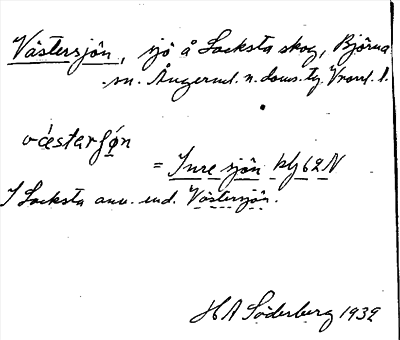 Västersjön, sjö å Locksta skog, Björna
sn. Ångermd. n. doms. tg. Vrml. l.
væstarʃǿn
= Inre sjön blj 62 N
I Locksta anv. end. Västersjön.
H A Söderberg 1932